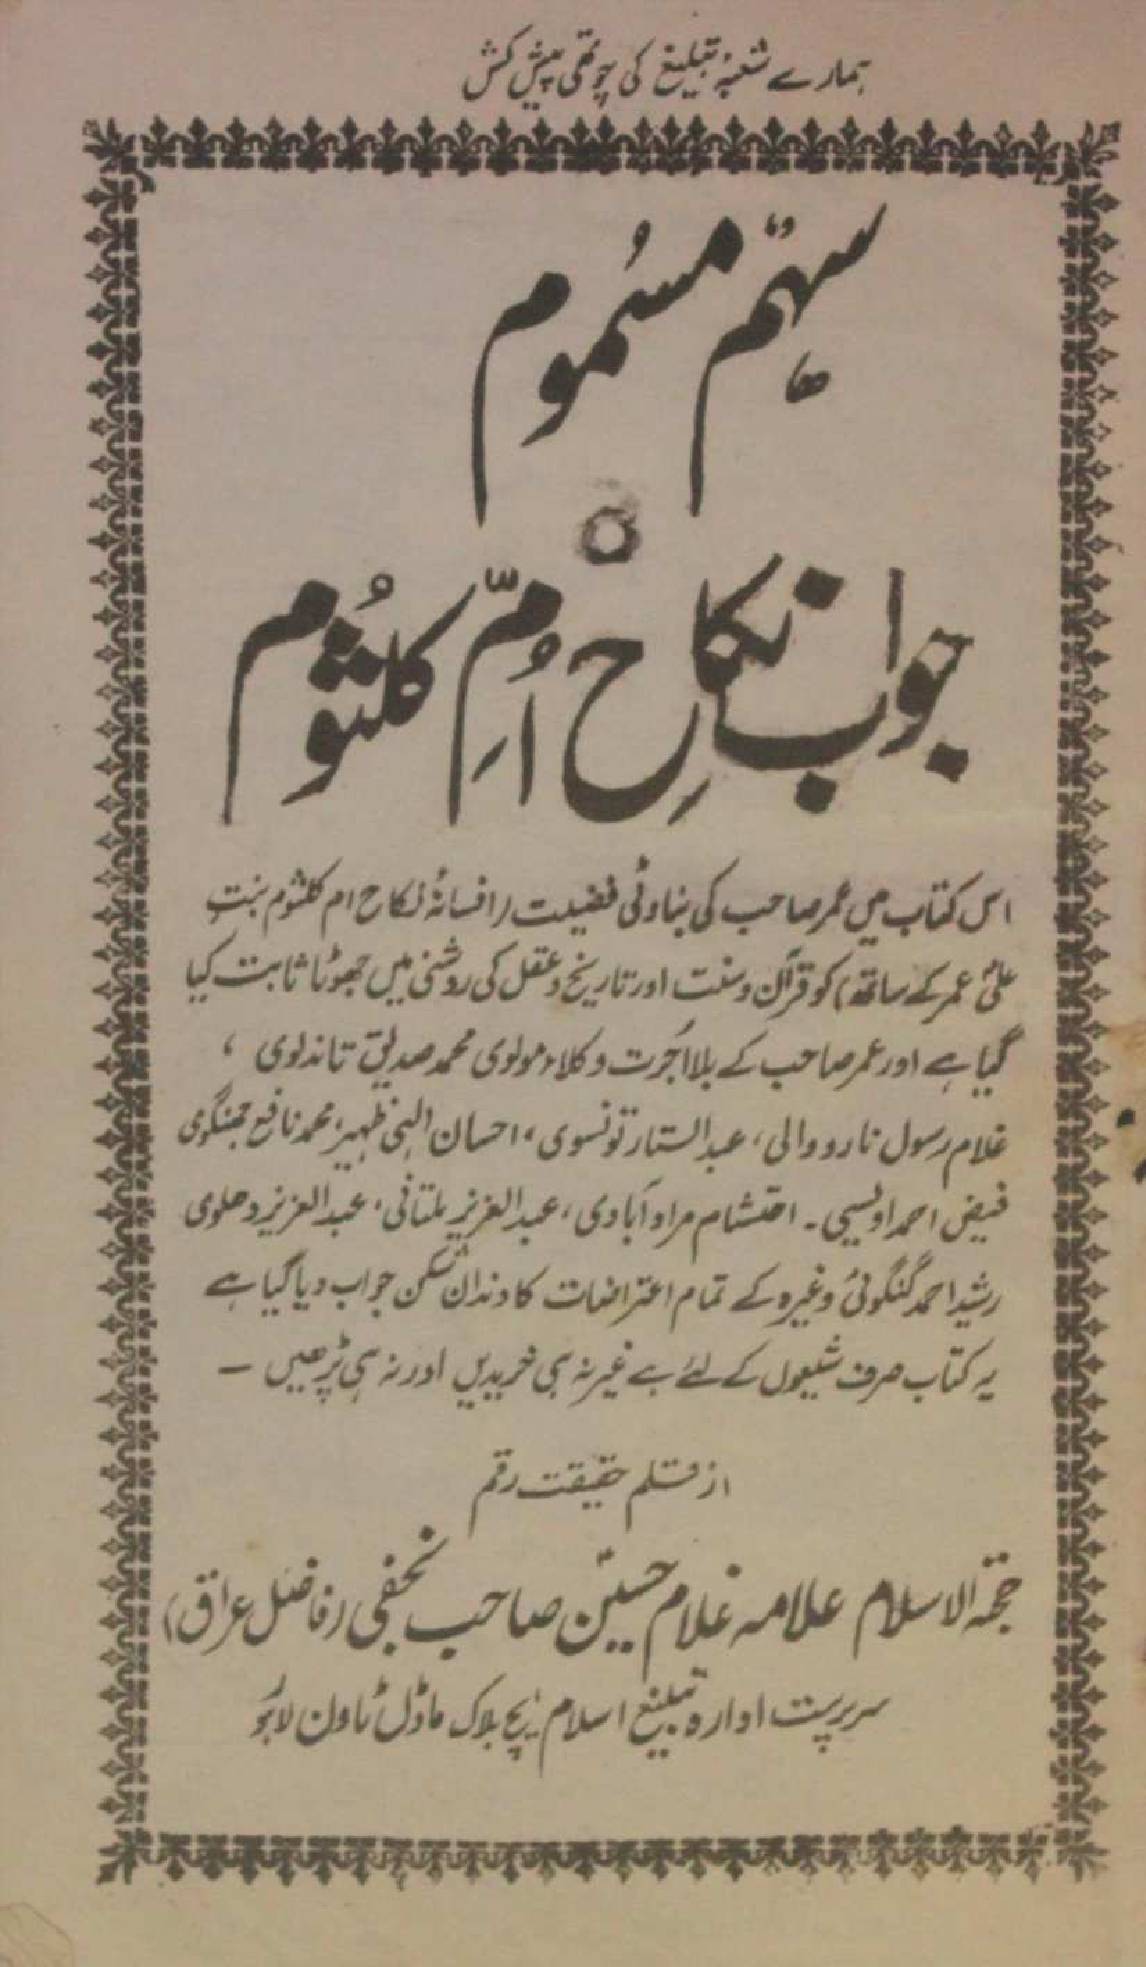 ہمارے شعبۂ تبلیغ کی چوتھی پیش کش
سہم مسُموم
جواب نکاحِ اُمِّ کلثوُم
اس کتاب میں عمر صاحب کی بناوٹی فضیلت (افسانۂ نکاح ام کلثوم بنتِ
علیؑ عمر کے ساتھ) کو قرآن و سنت اور تاریخ و عقل کی روشنی میں جھوٹا ثابت کیا
گیا ہے اور عمر صاحب کے بلا اُجرت وکلاء مولوی محمد صدیق تاندلوی ،
غلام رسول نارووالی، عبدالستار تونسوی، احسان الٰہی ظہیر، محمد نافع جھنگوی
فیض احمد اویسی ۔ احتشام مراد آبادی، عبدالعزیز ملتانی، عبدالعزیز دھلوی
رشید احمد گنگوئی وغیرہ کے تمام اعتراضات کا دندان شکن جواب دیا گیا ہے
یہ کتاب صرف شیعوں کے لئے ہے غیر نہ ہی خریدیں اور نہ ہی پڑھیں ۔
از قلم حقیقت رقم
حجۃ الاسلام علامہ غلام حسین صاحب نجفی (فاضل عراق)
سرپرست ادارہ تبلیغ اسلام ایچ بلاک ماڈل ٹاون لاہور